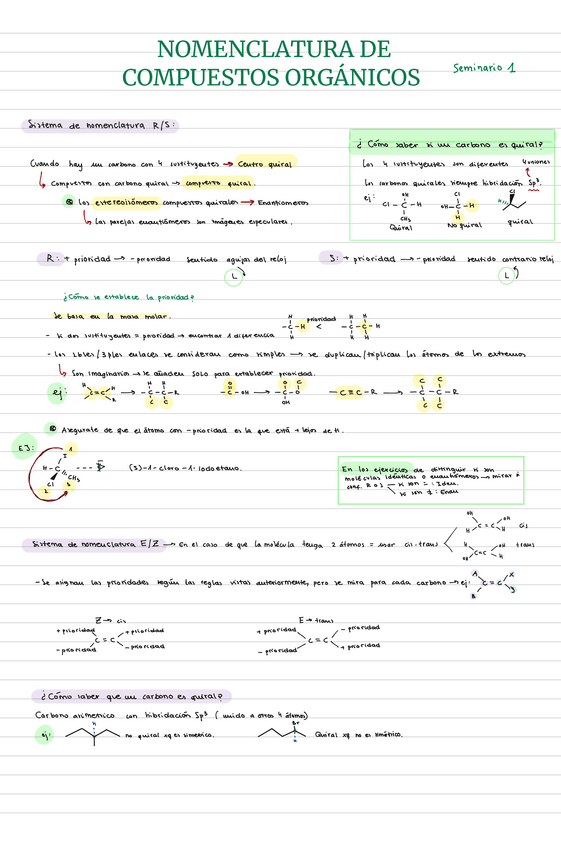 NOMENCLATURA DE
COMPUESTOS ORGÁNICOS
Seminario 1
Sistema de nomenclatura R/S:
Cuando hay un carbono con 4 sustituyentes → Centro quiral
Compuestos con carbono quiral → compuesto quiral.
Los estereoisómeros compuestos quirales → Enantiomeros
Las parejas enantiómeros son imágenes especulares.
¿Cómo saber si un carbono es quiral?
Los 4 sustituyentes son diferentes 4 uniones
Los carbonos quirales siempre hibridación Sp³.
ej:
Cl
OH-C-H
CH₃
Quiral
Cl
OH-C-H
H
No quiral
Cl
H
quiral
R: + prioridad → - prioridad sentido agujas del reloj
S: + prioridad → - prioridad sentido contrario reloj
¿Cómo se establece la prioridad?
Se basa en la masa molar.
- Si dos sustituyentes = prioridad → encontrar 1 diferencia
-C-H prioridad < -C-C-H
- Los 2bles/3ples enlaces se consideran como simples → se duplican/triplican los átomos de los extremos
Son imaginarios → se añaden solo para establecer prioridad.
ej:
-C≡C-R →
Asegurate de que el átomo con - prioridad es la que está + lejos de ti.
EJ:
I 1
H-C
CH₃
Cl
2 3
(S)-1-cloro-1-iodoetano.
En los ejercicios de distinguir si son
moléculas idénticas o enantiómeros → mirar si
conf. R o S → si son = : Iden.
si son ≠ : Enan
Sistema de nomenclatura E/Z → En el caso de que la molécula tenga 2 átomos = usar cis-trans
cis
trans
- Se asignan las prioridades según las reglas vistas anteriormente, pero se mira para cada carbono → ej:
Z → cis
+ prioridad + prioridad
C=C
- prioridad - prioridad
E → trans
+ prioridad - prioridad
C=C
- prioridad + prioridad
¿Cómo saber que un carbono es quiral?
Carbono asimetrico con hibridación Sp³ (unido a otros 4 átomos)
ej:
no quiral xq es simetrico.
Br
Quiral xq no es simétrico.